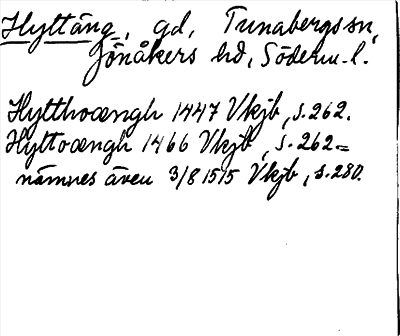 Hyttäng, gd, Tunabergs sn,
Jönåkers hd, Söderm. l.
Hytthoængh 1447 Vkjb, s. 262.
Hyttoængh 1466 Vkjb, s. 262 =
nämnes även 3/8 1515 Vkjb, s. 280.